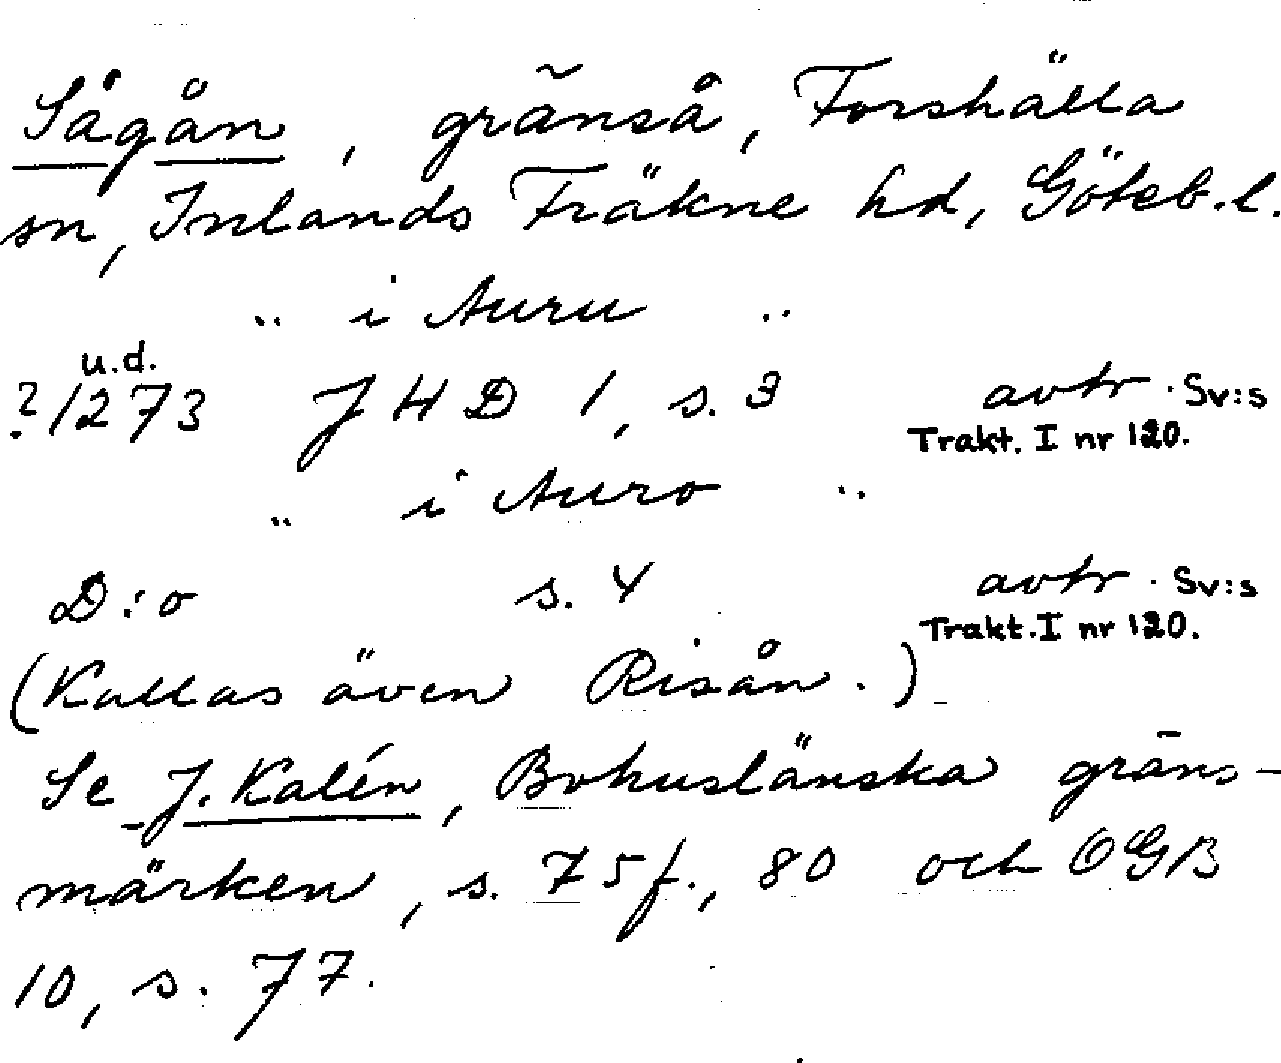 Sågån, gränså, Forshälla
sn, Inlands Fräkne hd, Göteb.l.
.. i Auru ..
u.d.
?1273 JHD 1, s. 3 avtr. Sv:s
Trakt. I nr 120.
.. i Auro ..
D:o s. 4 avtr. Sv:s
Trakt. I nr 120.
(Kallas även Risån.)
Se J. Kalén, Bohuslänska gräns-
märken, s. 75 f., 80 och OGB
10, s. 77.